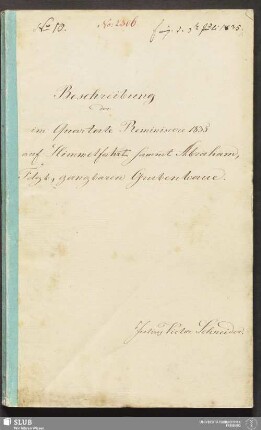 No 10.
No. 2306
Beschreibung
der
im Quartale Reminiscere 1835
auf Himmelfahrt sammt Abraham,
Fdgb., gangbaren Grubenbaue.
Justus Victor Schneider.
SLUB
Wir führen Wissen.